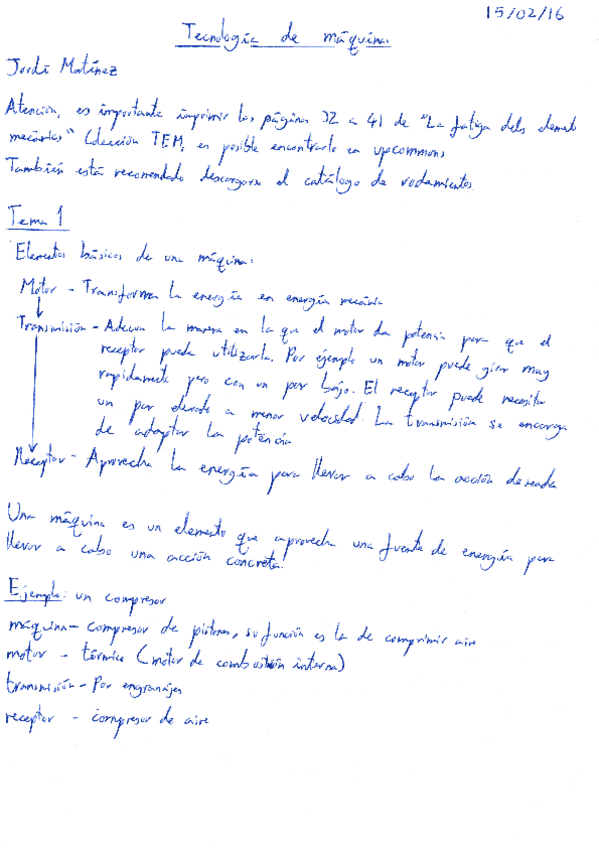 15/02/16
Tecnología de máquina
Jordi Matínez
Atención, es importante imprimir las página 32 a 41 de "La fatiga dels elements
mecànics" Colección TEM, es posible encontrarlo en upcommons
También está recomendado descargarse el catálogo de rodamientos
Tema 1
Elementos básicos de una máquina:
Motor - Transforma la energía en energía mecánica
Transmisión - Adecua la manera en la que el motor da potencia para que el
receptor pueda utilizarla. Por ejemplo un motor puede girar muy
rapidamente pero con un par bajo. El receptor puede necesitar
un par elevado a menor velocidad La transmisión se encarga
de adaptar la potencia
Receptor - Aprovecha la energía para llevar a cabo la acción deseada
Una máquina es un elemento que aprovecha una fuente de energía para
llevar a cabo una acción concreta.
Ejemplo: un compresor
máquina - compresor de pistones, su función es la de comprimir aire
motor - térmico (motor de combustión interna)
transmisión - Por engranajes
receptor - compresor de aire